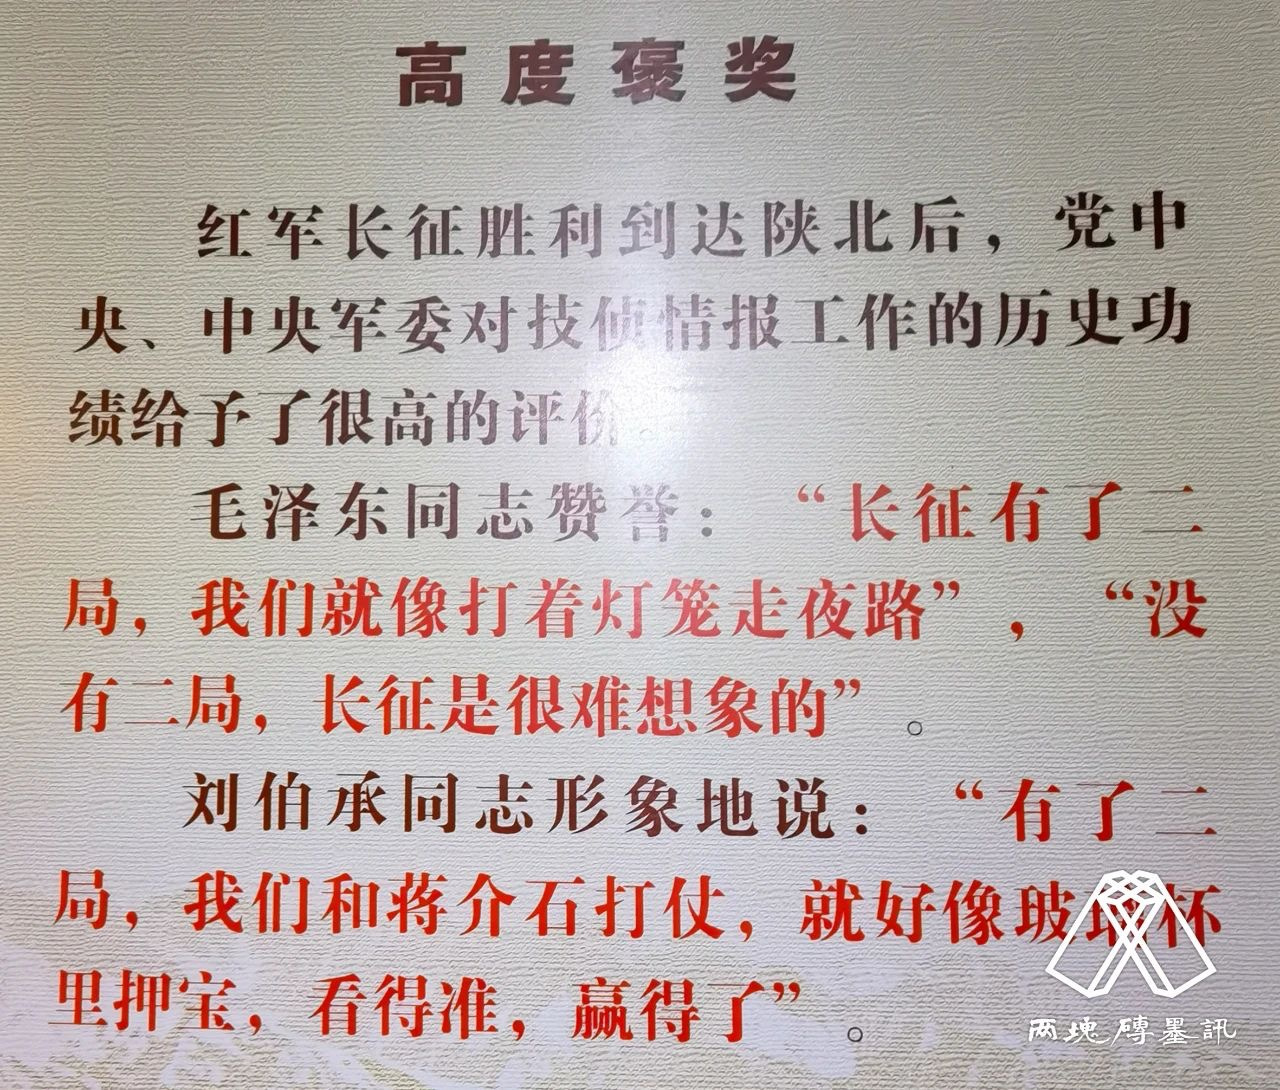 高度褒奖
红军长征胜利到达陕北后，党中
央、中央军委对技侦情报工作的历史功
绩给予了很高的评价。
毛泽东同志赞誉：“长征有了二
局，我们就像打着灯笼走夜路”，“没
有二局，长征是很难想象的”。
刘伯承同志形象地说：“有了二
局，我们和蒋介石打仗，就好像玻璃杯
里押宝，看得准，赢得了”。
两塊磚墨訊